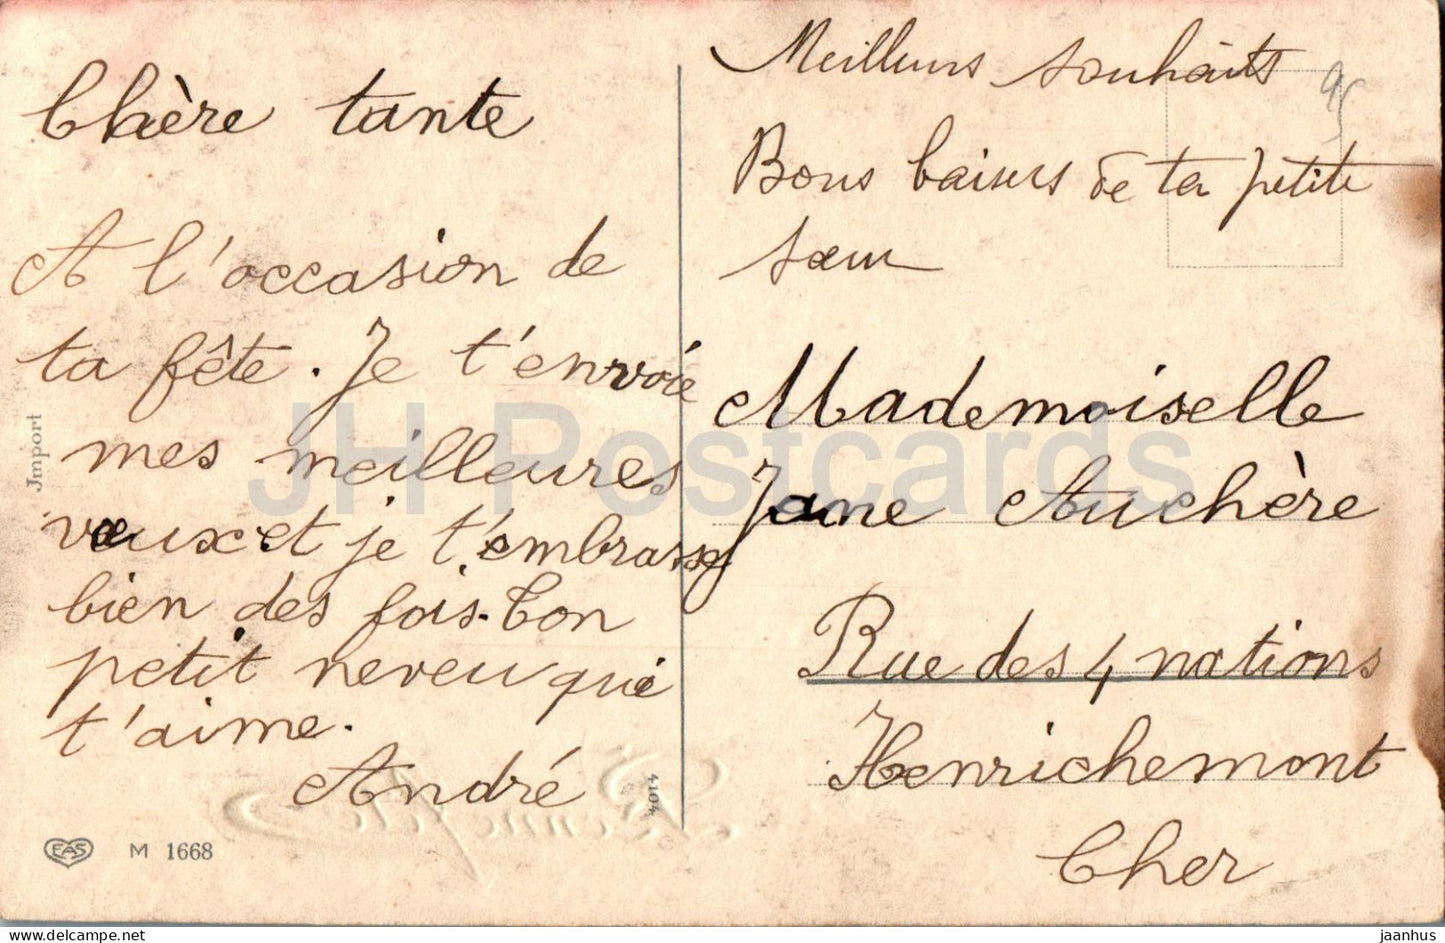 Chère tante
A l'occasion de
ta fête. Je t'envoie
mes meilleures
vœux et je t'embrasse
bien des fois. Ton
petit neveu qui
t'aime.
André
Meilleurs souhaits
Bons baisers de ta petite
sœur
95
Mademoiselle
Jane Auchère
Rue des 4 nations
Henrichemont
Cher
Import
4014
EAS M 1668
Bonne fête
JH Postcards
www.delcampe.net
jaanhus